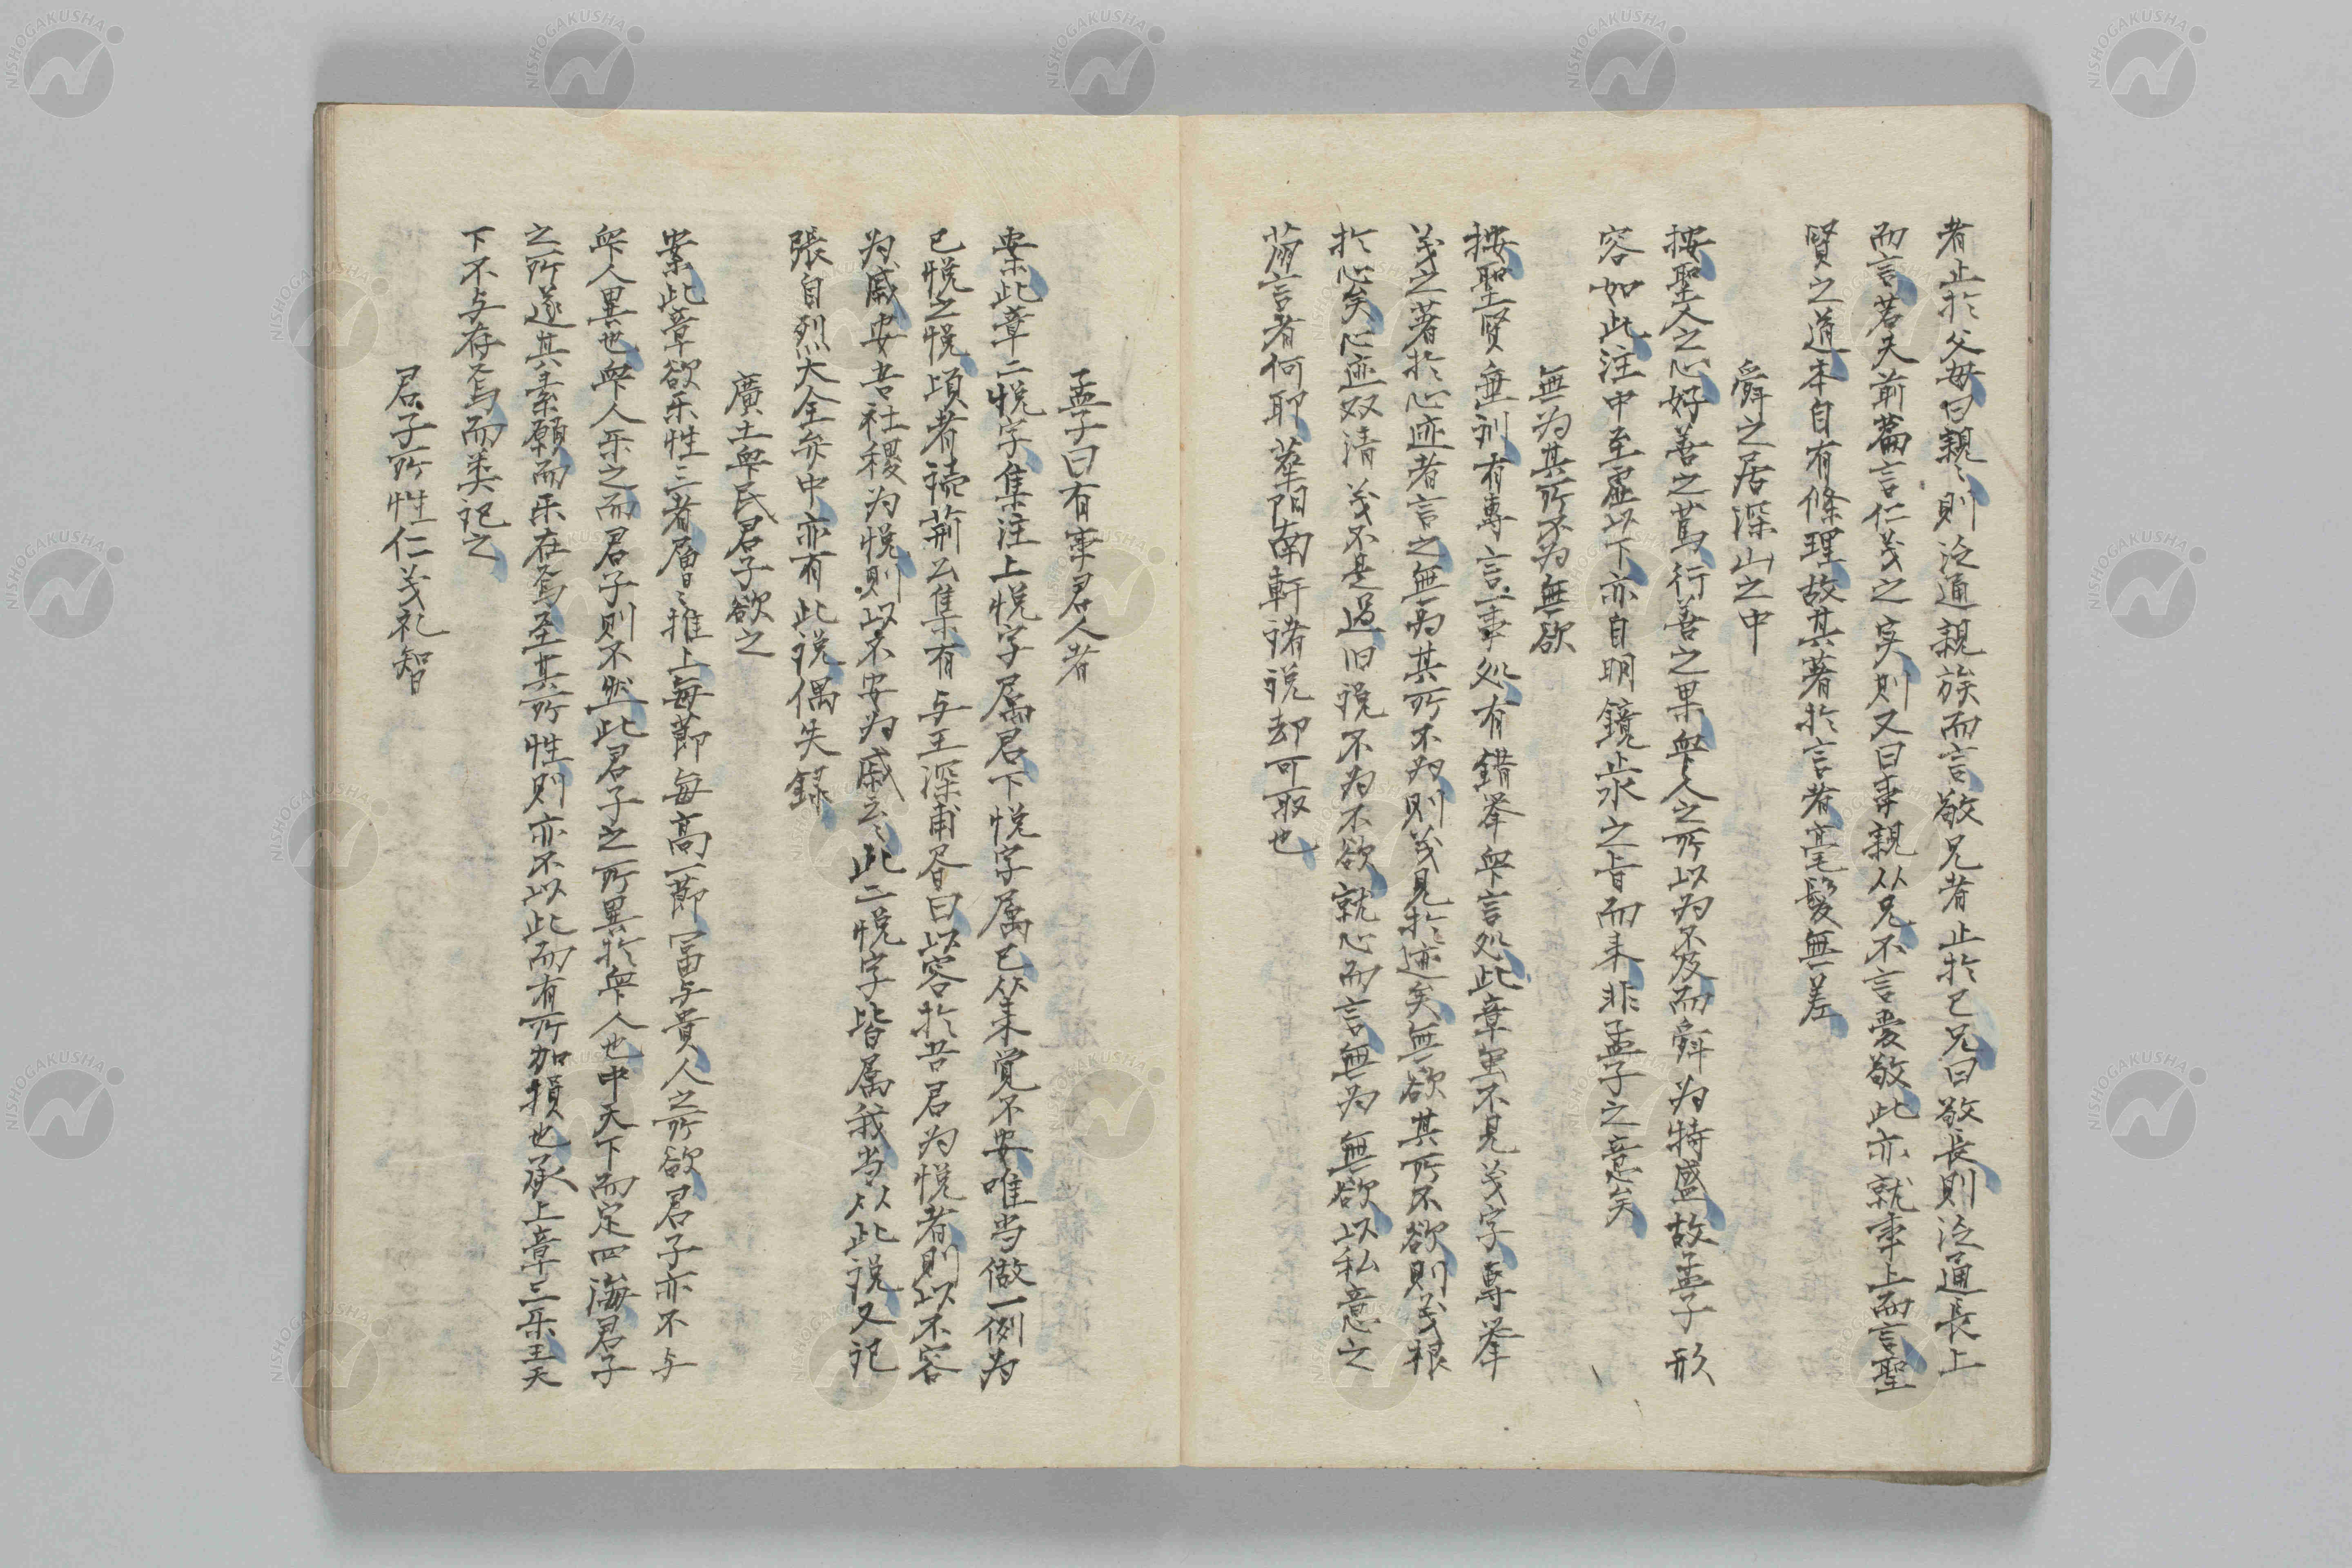 者止於父母曰親〻則泛通親族而言敬兄者止於已兄曰敬長則泛通長上
而言若夫前篇言仁义之実則又曰事親从兄不言愛敬此亦就事上而言聖
賢之道本自有條理故其著於言者毫髮無差
舜之居深山之中
按聖人之心好善之篤行善之果衆人之所以为不及而舜为特盛故孟子形
容如此注中至虛以下亦自明鏡止水之旨而来非孟子之意矣
無为其所不为無欲
按聖贤垂训有專言一事処有錯举衆言処此章虽不見义字專举
义之著於心迹者言之無为其所不为則义見於迹矣無欲其所不欲則义根
於心矣心迹双清义不是過旧說不为不欲就心而言無为無欲以私意之
萠言者何耶蔡阳南軒諸說却可取也
孟子曰有事君人者
案此章二悦字集注上悦字属君下悦字属已从来觉不安唯当做一例为
已悦之悦頃者读荊公集有与王深甫昏曰以容於吾君为悦者則以不容
为戚安吾社稷为悦則以不安为戚云〻此二悦字皆属我当从此説又记
張自烈大全弁中亦有此説偶失録
廣土衆民君子欲之
案此章欲乐性三者層〻推上每節每高一節冨与貴人之所欲君子亦不与
衆人異也衆人乐之而君子則不然此君子之所異於衆人也中天下而定四海君子
之所遂其素願而乐在焉至其所性則亦不以此而有所加損也承上章三乐王天
下不与存焉而类记之
君子所性仁义礼智